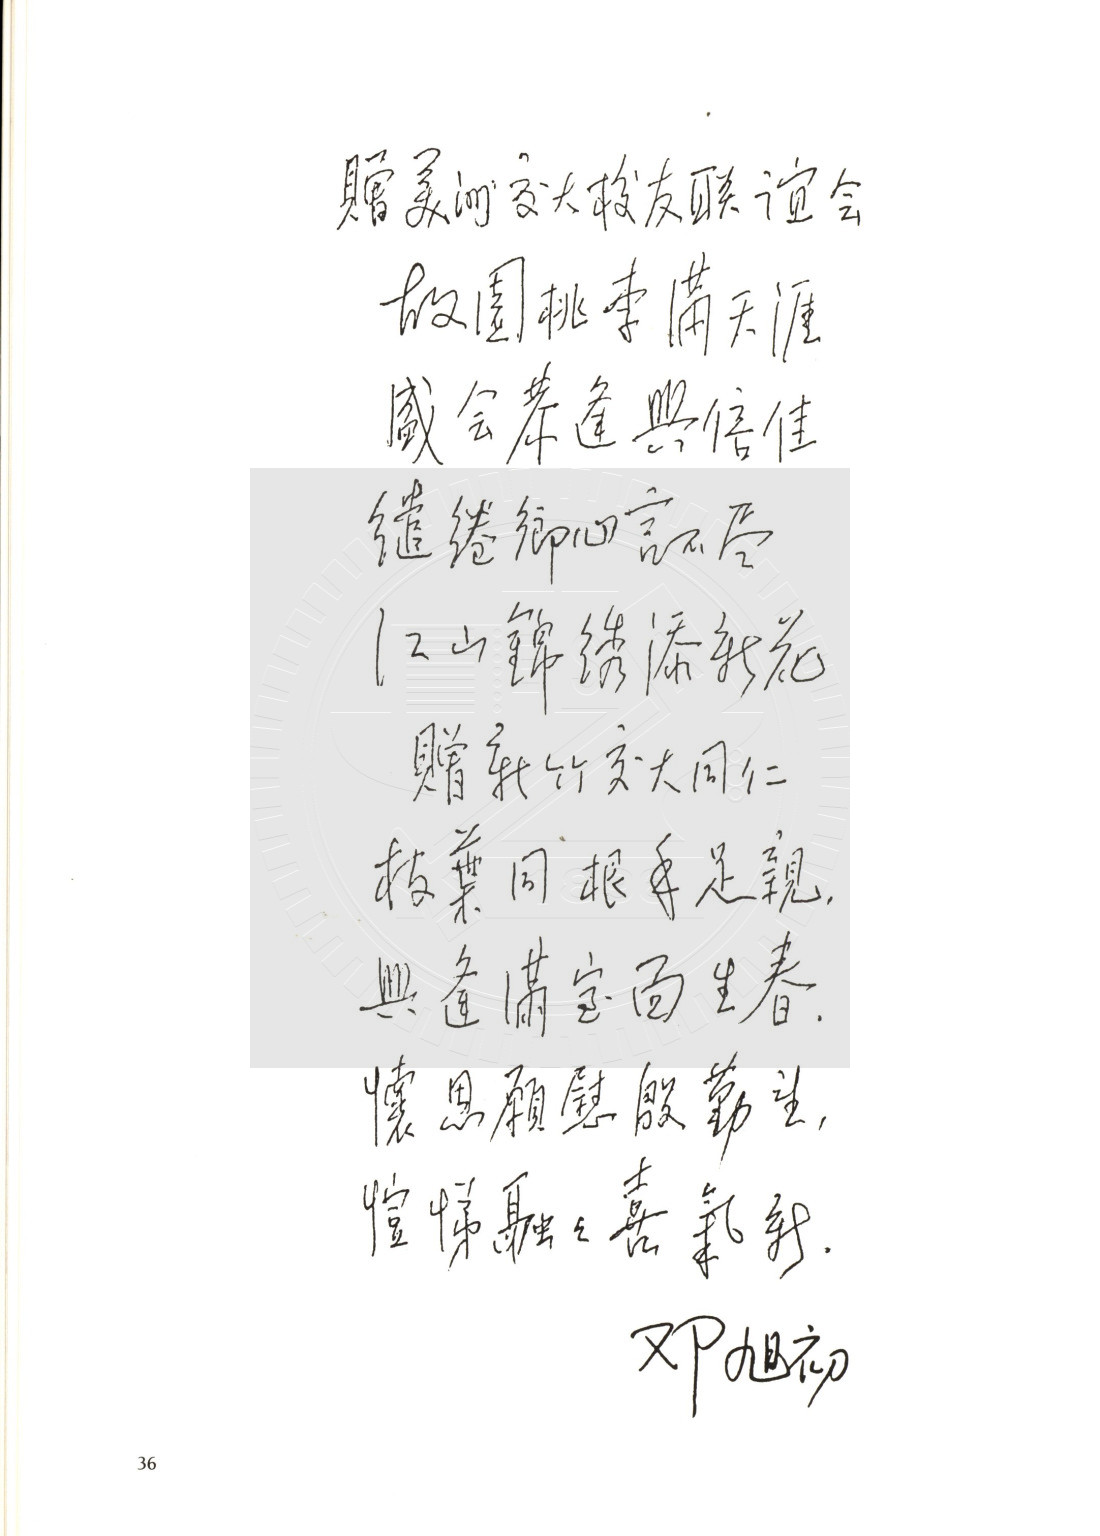 贈美洲交大校友联谊会
故園桃李满天涯
盛会恭逢興倍佳
繾綣鄉心言不尽
江山錦绣添新花
贈新竹交大同仁
枝葉同根手足親,
興逢满室面生春.
懷恩願慰殷勤望,
愷悌融々喜氣新.
邓旭初
36